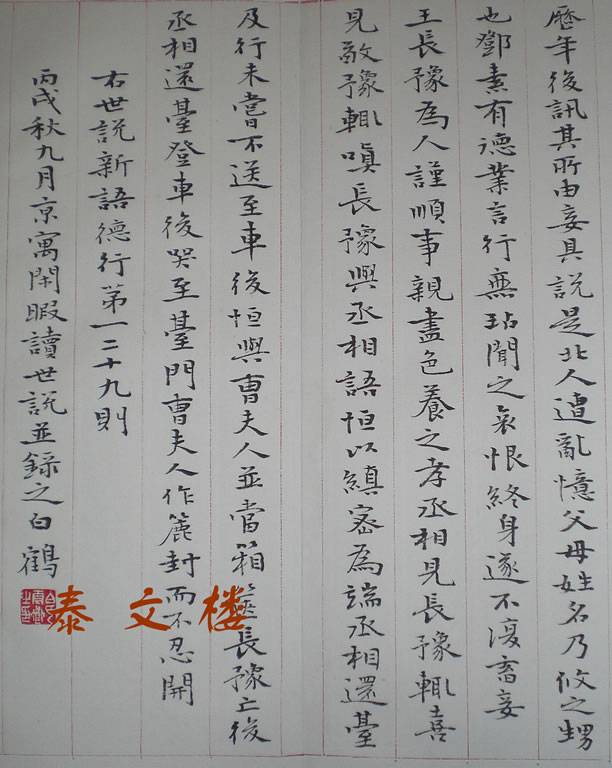 歷年後訊其所由妾具說是北人遭亂憶父母姓名乃攸之甥
也鄧素有德業言行無玷聞之哀恨終身遂不復畜妾
王長豫為人謹順事親盡色養之孝丞相見長豫輒喜
見敬豫輒嗔長豫與丞相語恒以縝密為端丞相還臺
及行未嘗不送至車後恒與曹夫人並當箱篋長豫亡後
丞相還臺登車後哭至臺門曹夫人作簏封而不忍開
右世說新語德行第一二十九則
丙戌秋九月京寓閑暇讀世說並錄之白鶴
泰文楼